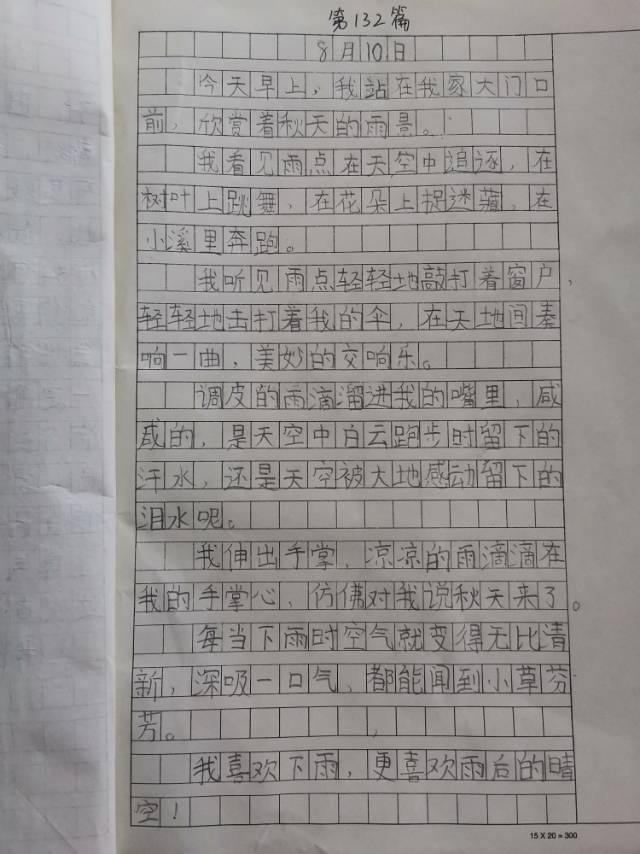 第132篇
8月10日
今天早上，我站在我家大门口
前，欣赏着秋天的雨景。
我看见雨点在天空中追逐，在
树叶上跳舞，在花朵上捉迷藏，在
小溪里奔跑。
我听见雨点轻轻地敲打着窗户，
轻轻地击打着我的伞，在天地间奏
响一曲，美妙的交响乐。
调皮的雨滴溜进我的嘴里，咸
咸的，是天空中白云跑步时留下的
汗水，还是天空被大地感动留下的
泪水呢。
我伸出手掌，凉凉的雨滴滴在
我的手掌心，仿佛对我说秋天来了。
每当下雨时空气就变得无比清
新，深吸一口气，都能闻到小草芬
芳。
我喜欢下雨，更喜欢雨后的晴
空！
15×20=300